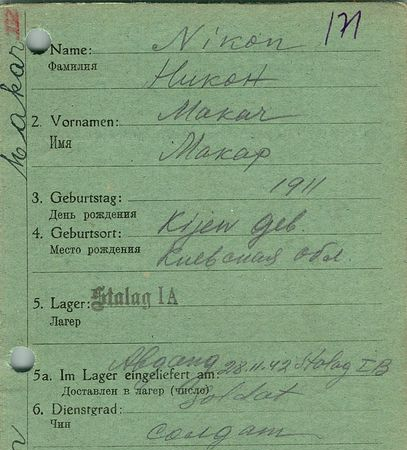 Makar III
171
1. Name: Nikon
Фамилия
Никон
2. Vornamen: Makar
Имя
Макар
3. Geburtstag: 1911
День рождения
4. Geburtsort: Kijew geb.
Место рождения Киевская обл.
5. Lager: Stalag IA
Лагер
Abgang 28.11.42 Stalag IB
5a. Im Lager eingeliefert am:
Доставлен в лагер (число)
6. Dienstgrad: Soldat
Чин
солдат